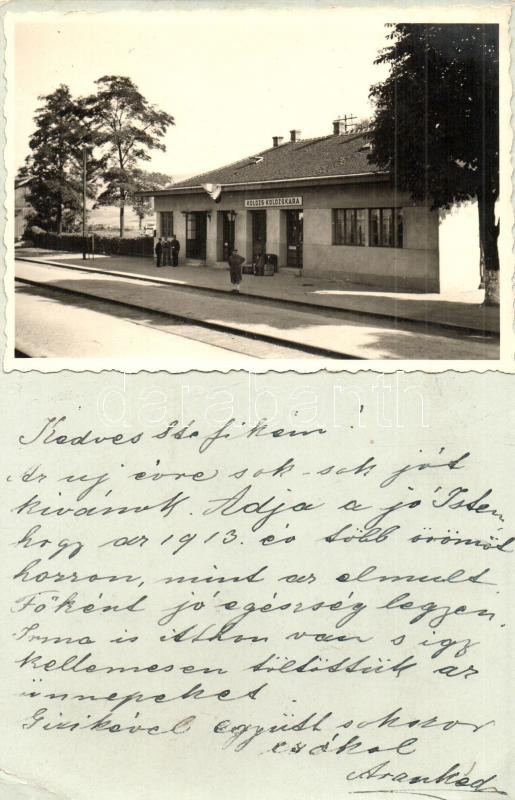 KOLOZS-KOLOZSKARA
darabanth
Kedves Stefikém!
Az uj évre sok-sok jót
kivánok. Adja a jó Isten
hogy az 1913. év több örömöt
hozzon, mint az elmult
Főként jó egészség legyen.
Irma is itthon van s igy
kellemesen töltöttük az
ünnepeket.
Gizikével együtt sokszor
csókol
Arankád